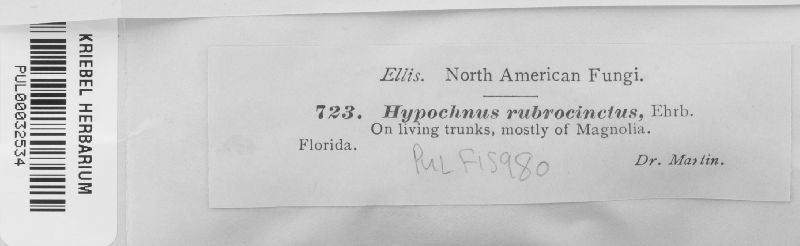 KRIEBEL HERBARIUM
PUL00032534
Ellis. North American Fungi.
723. Hypochnus rubrocinctus, Ehrb.
On living trunks, mostly of Magnolia.
Florida.
PUL F15980
Dr. Martin.